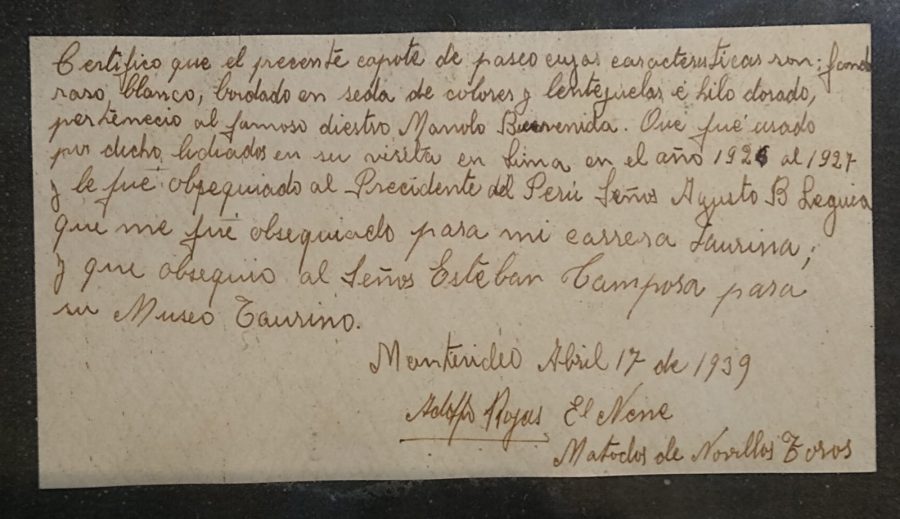 Certifico que el precente capote de paseo cuyas caracteristicas son; fondo
raso, blanco, bordado en seda de colores y lentejuelas é hilo dorado,
pertenecio al famoso diestro Manolo Buenvenida. Que fué usado
por dicho lidiados en su visita en Lima en el año 1926 al 1927
y le fué obsequiado al Precidente del Perú Seños Agusto B Leguia
que me fué obsequiado para mi carrera Taurina;
y que obsequio al Seños Esteban Tamposa para
su Museo Taurino.
Montevideo Abril 17 de 1939
Adolfo Rojas El Nene
Matados de Novillos Toros